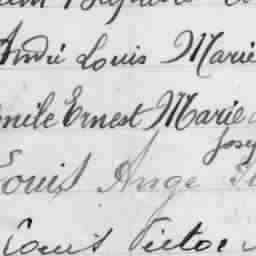 André Louis Marie
Emile Ernest Marie
Louis Ange
Louis Victor